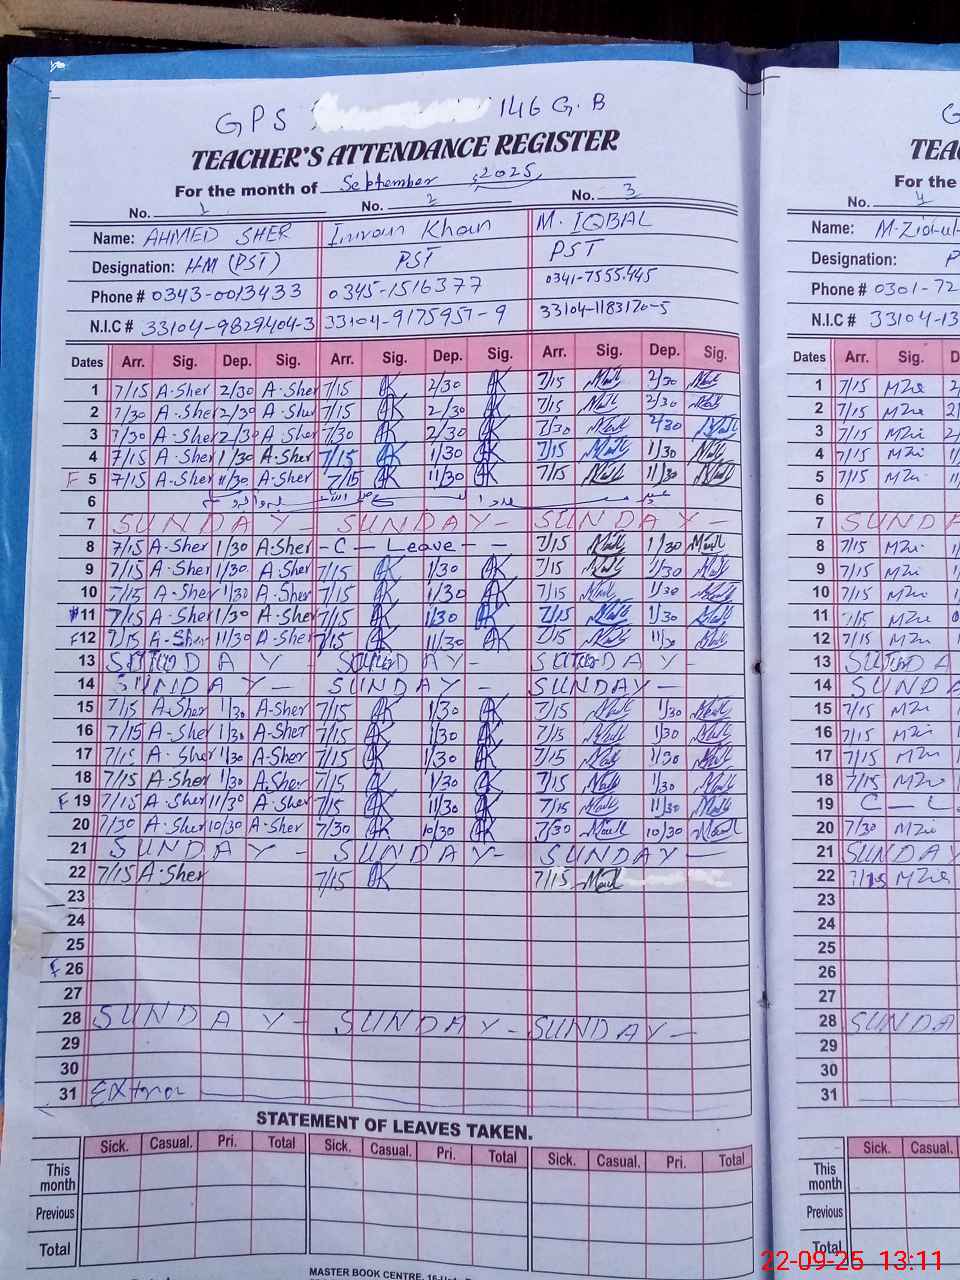 GPS 146 G.B
TEACHER'S ATTENDANCE REGISTER
For the month of September 2025
No. 1 No. 2 No. 3
Name: AHMED SHER Imran Khan M. IQBAL
Designation: HM (PST) PST PST
Phone # 0343-0013433 0345-1516377 0341-7555445
N.I.C # 33104-9829404-3 33104-9175957-9 33104-1183170-5
Dates Arr. Sig. Dep. Sig. Arr. Sig. Dep. Sig. Arr. Sig. Dep. Sig.
1 7/15 A.Sher 2/30 A.Sher 7/15 AK 2/30 AK 7/15 2/30
2 7/30 A.Sher 2/30 A.Sher 7/15 AK 2/30 AK 7/15 2/30
3 7/30 A.Sher 2/30 A.Sher 7/30 AK 2/30 AK 7/30 2/30
4 7/15 A.Sher 1/30 A.Sher 7/15 AK 1/30 AK 7/15 1/30
F 5 7/15 A.Sher 11/30 A.Sher 7/15 AK 11/30 AK 7/15 11/30
6
7 SUNDAY - SUNDAY - SUNDAY -
8 7/15 A.Sher 1/30 A.Sher - C - Leave - - 7/15 1/30
9 7/15 A.Sher 1/30 A.Sher 7/15 AK 1/30 AK 7/15 1/30
10 7/15 A.Sher 1/30 A.Sher 7/15 AK 1/30 AK 7/15 1/30
11 7/15 A.Sher 1/30 A.Sher 7/15 AK 1/30 AK 7/15 1/30
F 12 7/15 A.Sher 11/30 A.Sher 7/15 AK 11/30 AK 7/15 11/30
13
14 SUNDAY - SUNDAY - SUNDAY -
15 7/15 A.Sher 1/30 A.Sher 7/15 AK 1/30 AK 7/15 1/30
16 7/15 A.Sher 1/30 A.Sher 7/15 AK 1/30 AK 7/15 1/30
17 7/15 A.Sher 1/30 A.Sher 7/15 AK 1/30 AK 7/15 1/30
18 7/15 A.Sher 1/30 A.Sher 7/15 AK 1/30 AK 7/15 1/30
F 19 7/15 A.Sher 11/30 A.Sher 7/15 AK 11/30 AK 7/15 11/30
20 7/30 A.Sher 10/30 A.Sher 7/30 AK 10/30 AK 7/30 10/30
21 SUNDAY - SUNDAY - SUNDAY -
22 7/15 A.Sher 7/15 AK 7/15
23
24
25
F 26
27
28 SUNDAY - SUNDAY - SUNDAY -
29
30
31
STATEMENT OF LEAVES TAKEN.
Sick. Casual. Pri. Total Sick. Casual. Pri. Total Sick. Casual. Pri. Total
This month
Previous
Total
MASTER BOOK CENTRE,
For the
No. 4
Name:
Designation: P
Phone # 0301-72
N.I.C # 33104-13
Dates Arr. Sig.
1 7/15
2 7/15
3 7/15
4 7/15
5 7/15
6
7 SUNDA
8 7/15
9 7/15
10 7/15
11 7/15
12 7/15
13
14 SUNDA
15 7/15
16 7/15
17 7/15
18 7/15
19 C - L
20 7/30
21 SUNDAY
22 7/15
23
24
25
26
27
28 SUNDA
29
30
31
Sick. Casual.
This month
Previous
Total
22-09-25 13:11